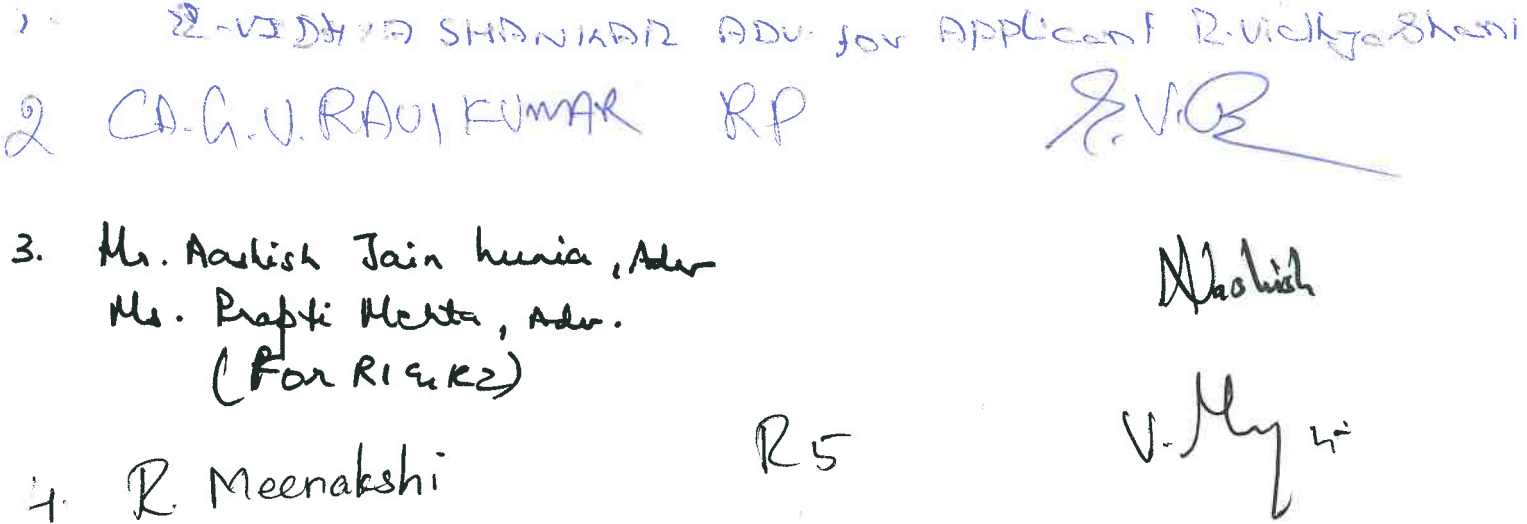 1. R-VIDHYA SHANKAR ADV. for Applicant R.Vidhya Shank
2 CA.G.V.RAVIKUMAR RP G.V.R
3. Mr. Aashish Jain Lunia, Adv Aashish
Ms. Prapti Mehta, Adv.
(For R1 & R2)
4. R. Meenakshi R5 V.